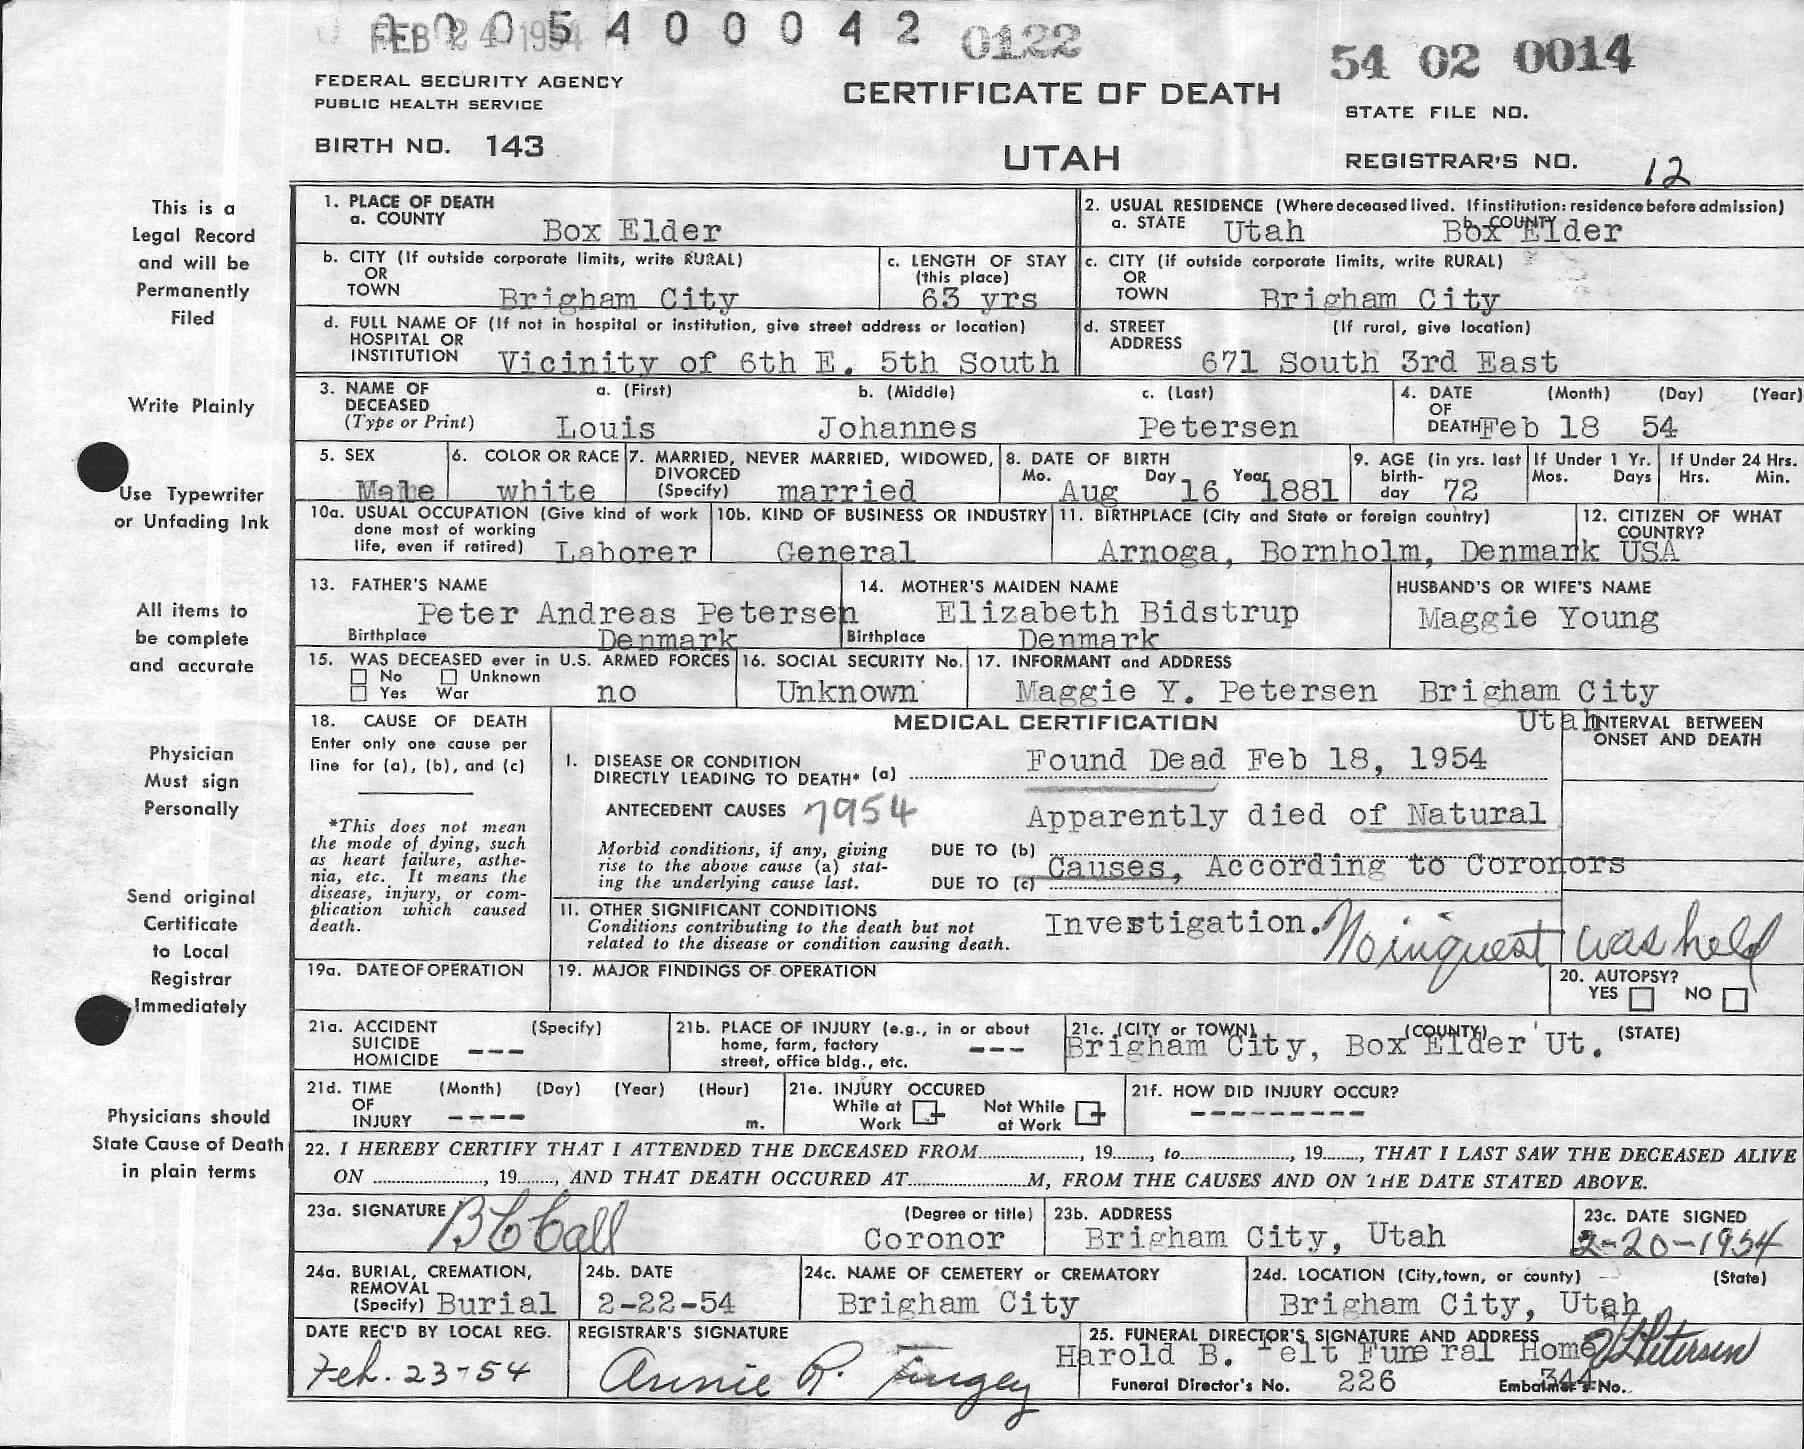 FEB 24 1954 005400042 0122 54 02 0014
FEDERAL SECURITY AGENCY
PUBLIC HEALTH SERVICE
CERTIFICATE OF DEATH
STATE FILE NO.
BIRTH NO. 143
UTAH
REGISTRAR'S NO. 12
This is a
Legal Record
and will be
Permanently
Filed
Write Plainly
Use Typewriter
or Unfading Ink
All items to
be complete
and accurate
Physician
Must sign
Personally
Send original
Certificate
to Local
Registrar
Immediately
Physicians should
State Cause of Death
in plain terms
1. PLACE OF DEATH
a. COUNTY Box Elder
2. USUAL RESIDENCE (Where deceased lived. If institution: residence before admission)
a. STATE Utah b. COUNTY Box Elder
b. CITY (If outside corporate limits, write RURAL)
OR
TOWN Brigham City
c. LENGTH OF STAY
(this place)
63 yrs
c. CITY (if outside corporate limits, write RURAL)
OR
TOWN Brigham City
d. FULL NAME OF (If not in hospital or institution, give street address or location)
HOSPITAL OR
INSTITUTION Vicinity of 6th E. 5th South
d. STREET (If rural, give location)
ADDRESS 671 South 3rd East
3. NAME OF a. (First) b. (Middle) c. (Last)
DECEASED
(Type or Print) Louis Johannes Petersen
4. DATE (Month) (Day) (Year)
OF
DEATH Feb 18 54
5. SEX
Male
6. COLOR OR RACE
white
7. MARRIED, NEVER MARRIED, WIDOWED,
DIVORCED
(Specify) married
8. DATE OF BIRTH
Mo. Aug Day 16 Year 1881
9. AGE (in yrs. last
birth-
day 72
If Under 1 Yr.
Mos. Days
If Under 24 Hrs.
Hrs. Min.
10a. USUAL OCCUPATION (Give kind of work
done most of working
life, even if retired) Laborer
10b. KIND OF BUSINESS OR INDUSTRY
General
11. BIRTHPLACE (City and State or foreign country)
Arnoga, Bornholm, Denmark
12. CITIZEN OF WHAT
COUNTRY?
USA
13. FATHER'S NAME
Peter Andreas Petersen
Birthplace Denmark
14. MOTHER'S MAIDEN NAME
Elizabeth Bidstrup
Birthplace Denmark
HUSBAND'S OR WIFE'S NAME
Maggie Young
15. WAS DECEASED ever in U.S. ARMED FORCES
No Unknown
Yes War no
16. SOCIAL SECURITY No.
Unknown
17. INFORMANT and ADDRESS
Maggie Y. Petersen Brigham City
Utah
18. CAUSE OF DEATH
Enter only one cause per
line for (a), (b), and (c)
*This does not mean
the mode of dying, such
as heart failure, asthe-
nia, etc. It means the
disease, injury, or com-
plication which caused
death.
MEDICAL CERTIFICATION
INTERVAL BETWEEN
ONSET AND DEATH
I. DISEASE OR CONDITION
DIRECTLY LEADING TO DEATH* (a) Found Dead Feb 18, 1954
ANTECEDENT CAUSES 7954 Apparently died of Natural
Morbid conditions, if any, giving
rise to the above cause (a) stat-
ing the underlying cause last.
DUE TO (b)
Causes, According to Coronors
DUE TO (c)
11. OTHER SIGNIFICANT CONDITIONS
Conditions contributing to the death but not
related to the disease or condition causing death.
Investigation. No inquest was held
19a. DATE OF OPERATION
19. MAJOR FINDINGS OF OPERATION
20. AUTOPSY?
YES NO
21a. ACCIDENT (Specify)
SUICIDE
HOMICIDE ---
21b. PLACE OF INJURY (e.g., in or about
home, farm, factory
street, office bldg., etc. ---
21c. (CITY or TOWN) (COUNTY) (STATE)
Brigham City, Box Elder Ut.
21d. TIME (Month) (Day) (Year) (Hour)
OF
INJURY ---- m.
21e. INJURY OCCURED
While at
Work
Not While
at Work
21f. HOW DID INJURY OCCUR?
---------
22. I HEREBY CERTIFY THAT I ATTENDED THE DECEASED FROM............, 19......, to............, 19......, THAT I LAST SAW THE DECEASED ALIVE
ON ............, 19......, AND THAT DEATH OCCURED AT............M, FROM THE CAUSES AND ON THE DATE STATED ABOVE.
23a. SIGNATURE (Degree or title)
B C Call Coronor
23b. ADDRESS
Brigham City, Utah
23c. DATE SIGNED
2-20-1954
24a. BURIAL, CREMATION,
REMOVAL
(Specify) Burial
24b. DATE
2-22-54
24c. NAME OF CEMETERY or CREMATORY
Brigham City
24d. LOCATION (City,town, or county) (State)
Brigham City, Utah
DATE REC'D BY LOCAL REG.
Feb. 23-54
REGISTRAR'S SIGNATURE
Annie R. Fingey
25. FUNERAL DIRECTOR'S SIGNATURE AND ADDRESS
Harold B. Felt Funeral Home Petersen
Funeral Director's No. 226 Embalmer's No. 344